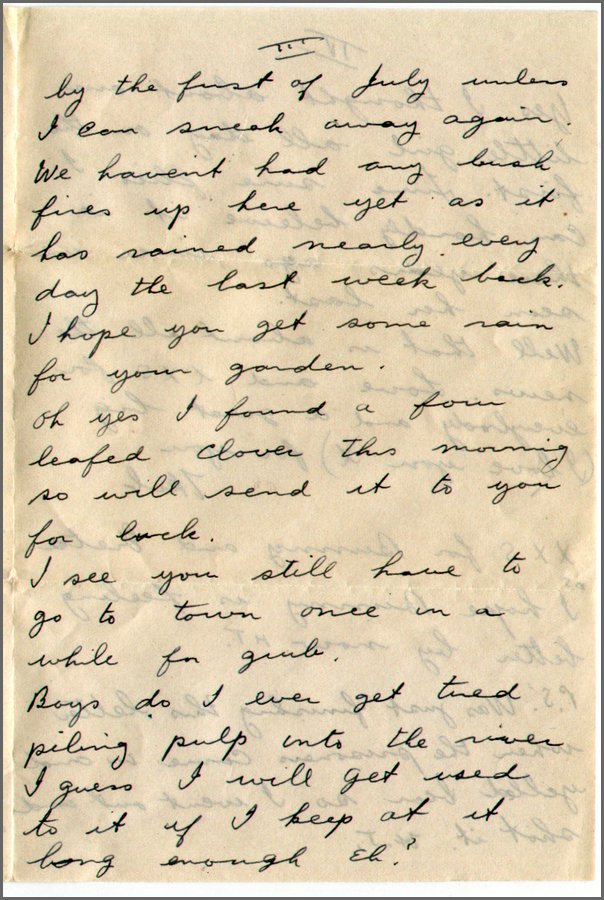 III
by the first of July unless
I can sneak away again.
We havent had any bush
fires up here yet as it
has rained nearly every
day the last week back.
I hope you get some rain
for your garden.
Oh yes I found a four
leafed clover this morning
so will send it to you
for luck.
I see you still have to
go to town once in a
while for grub.
Boys do I ever get tired
piling pulp into the river
I guess I will get used
to it if I keep at it
long enough Eh?